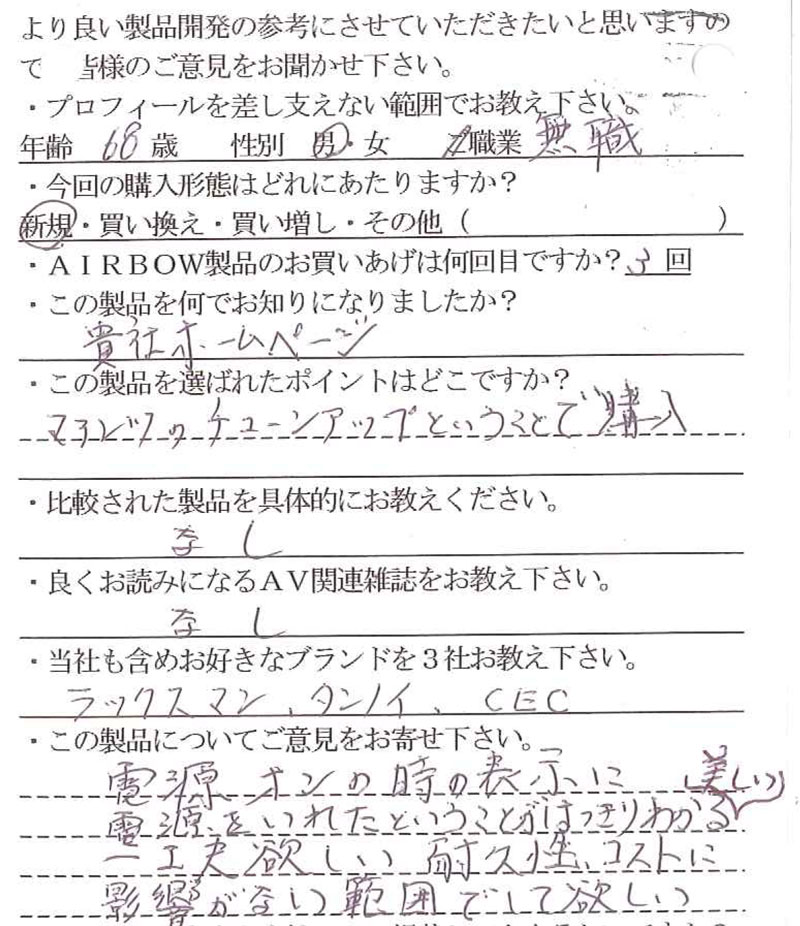 より良い製品開発の参考にさせていただきたいと思いますの
で 皆様のご意見をお聞かせ下さい。
・プロフィールを差し支えない範囲でお教え下さい。
年齢 68 歳 性別 男・女 職業 無職
・今回の購入形態はどれにあたりますか？
新規・買い換え・買い増し・その他（ ）
・ＡＩＲＢＯＷ製品のお買いあげは何回目ですか？ 3 回
・この製品を何でお知りになりましたか？
貴社ホームページ
・この製品を選ばれたポイントはどこですか？
チューンアップということで購入
・比較された製品を具体的にお教えください。
なし
・良くお読みになるＡＶ関連雑誌をお教え下さい。
なし
・当社も含めお好きなブランドを３社お教え下さい。
ラックスマン、タンノイ、CEC
・この製品についてご意見をお寄せ下さい。
電源オンの時の表示に （美しい）
電源をいれたということがはっきりわかる
一工夫欲しい 耐久性、コストに
影響がない範囲でして欲しい